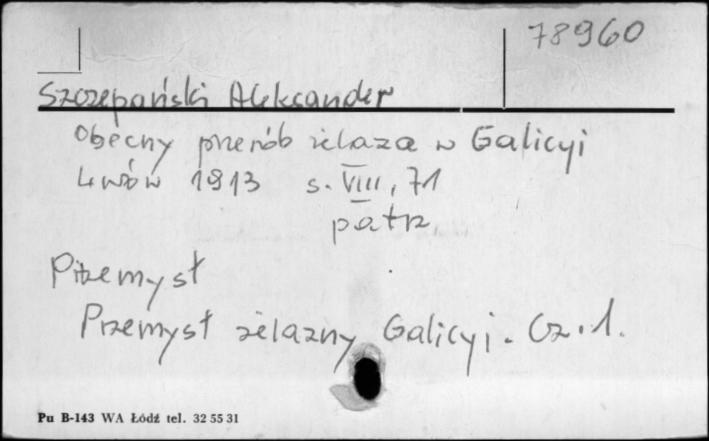 78960
Szczepański Aleksander
Obecny przerób żelaza w Galicyi
Lwów 1913 s. VIII, 71
patrz
Przemysł
Przemysł żelazny Galicyi. Cz. 1.
Pu B-143 WA Łódź tel. 32 55 31